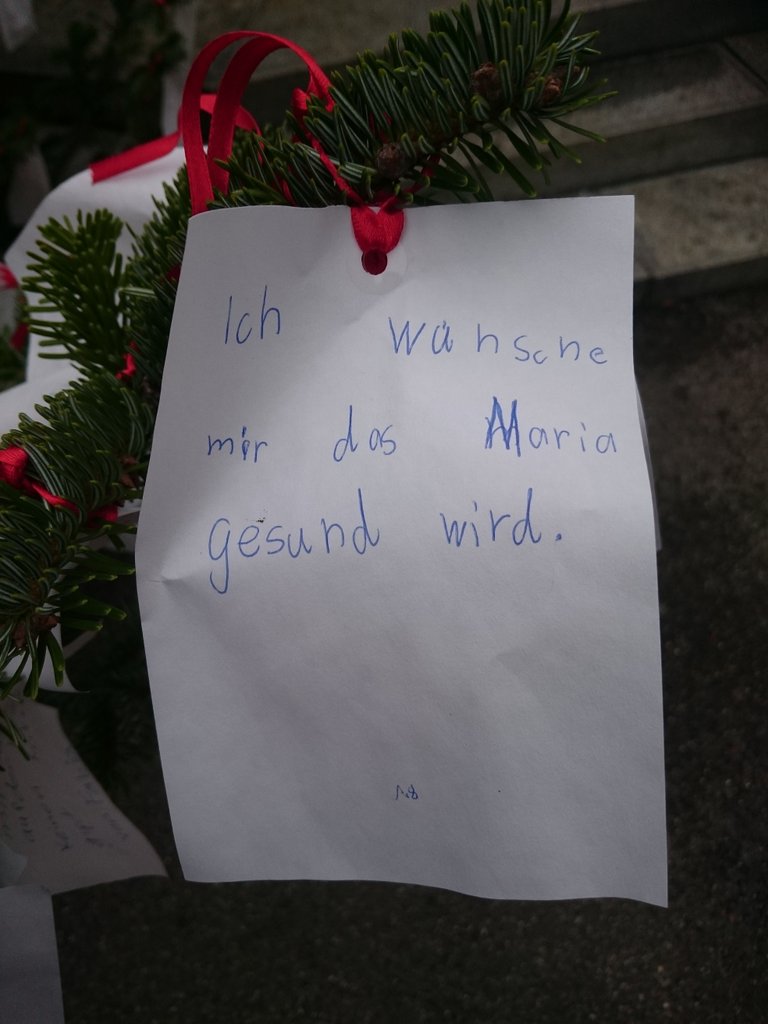 Ich wünsche
mir das Maria
gesund wird.